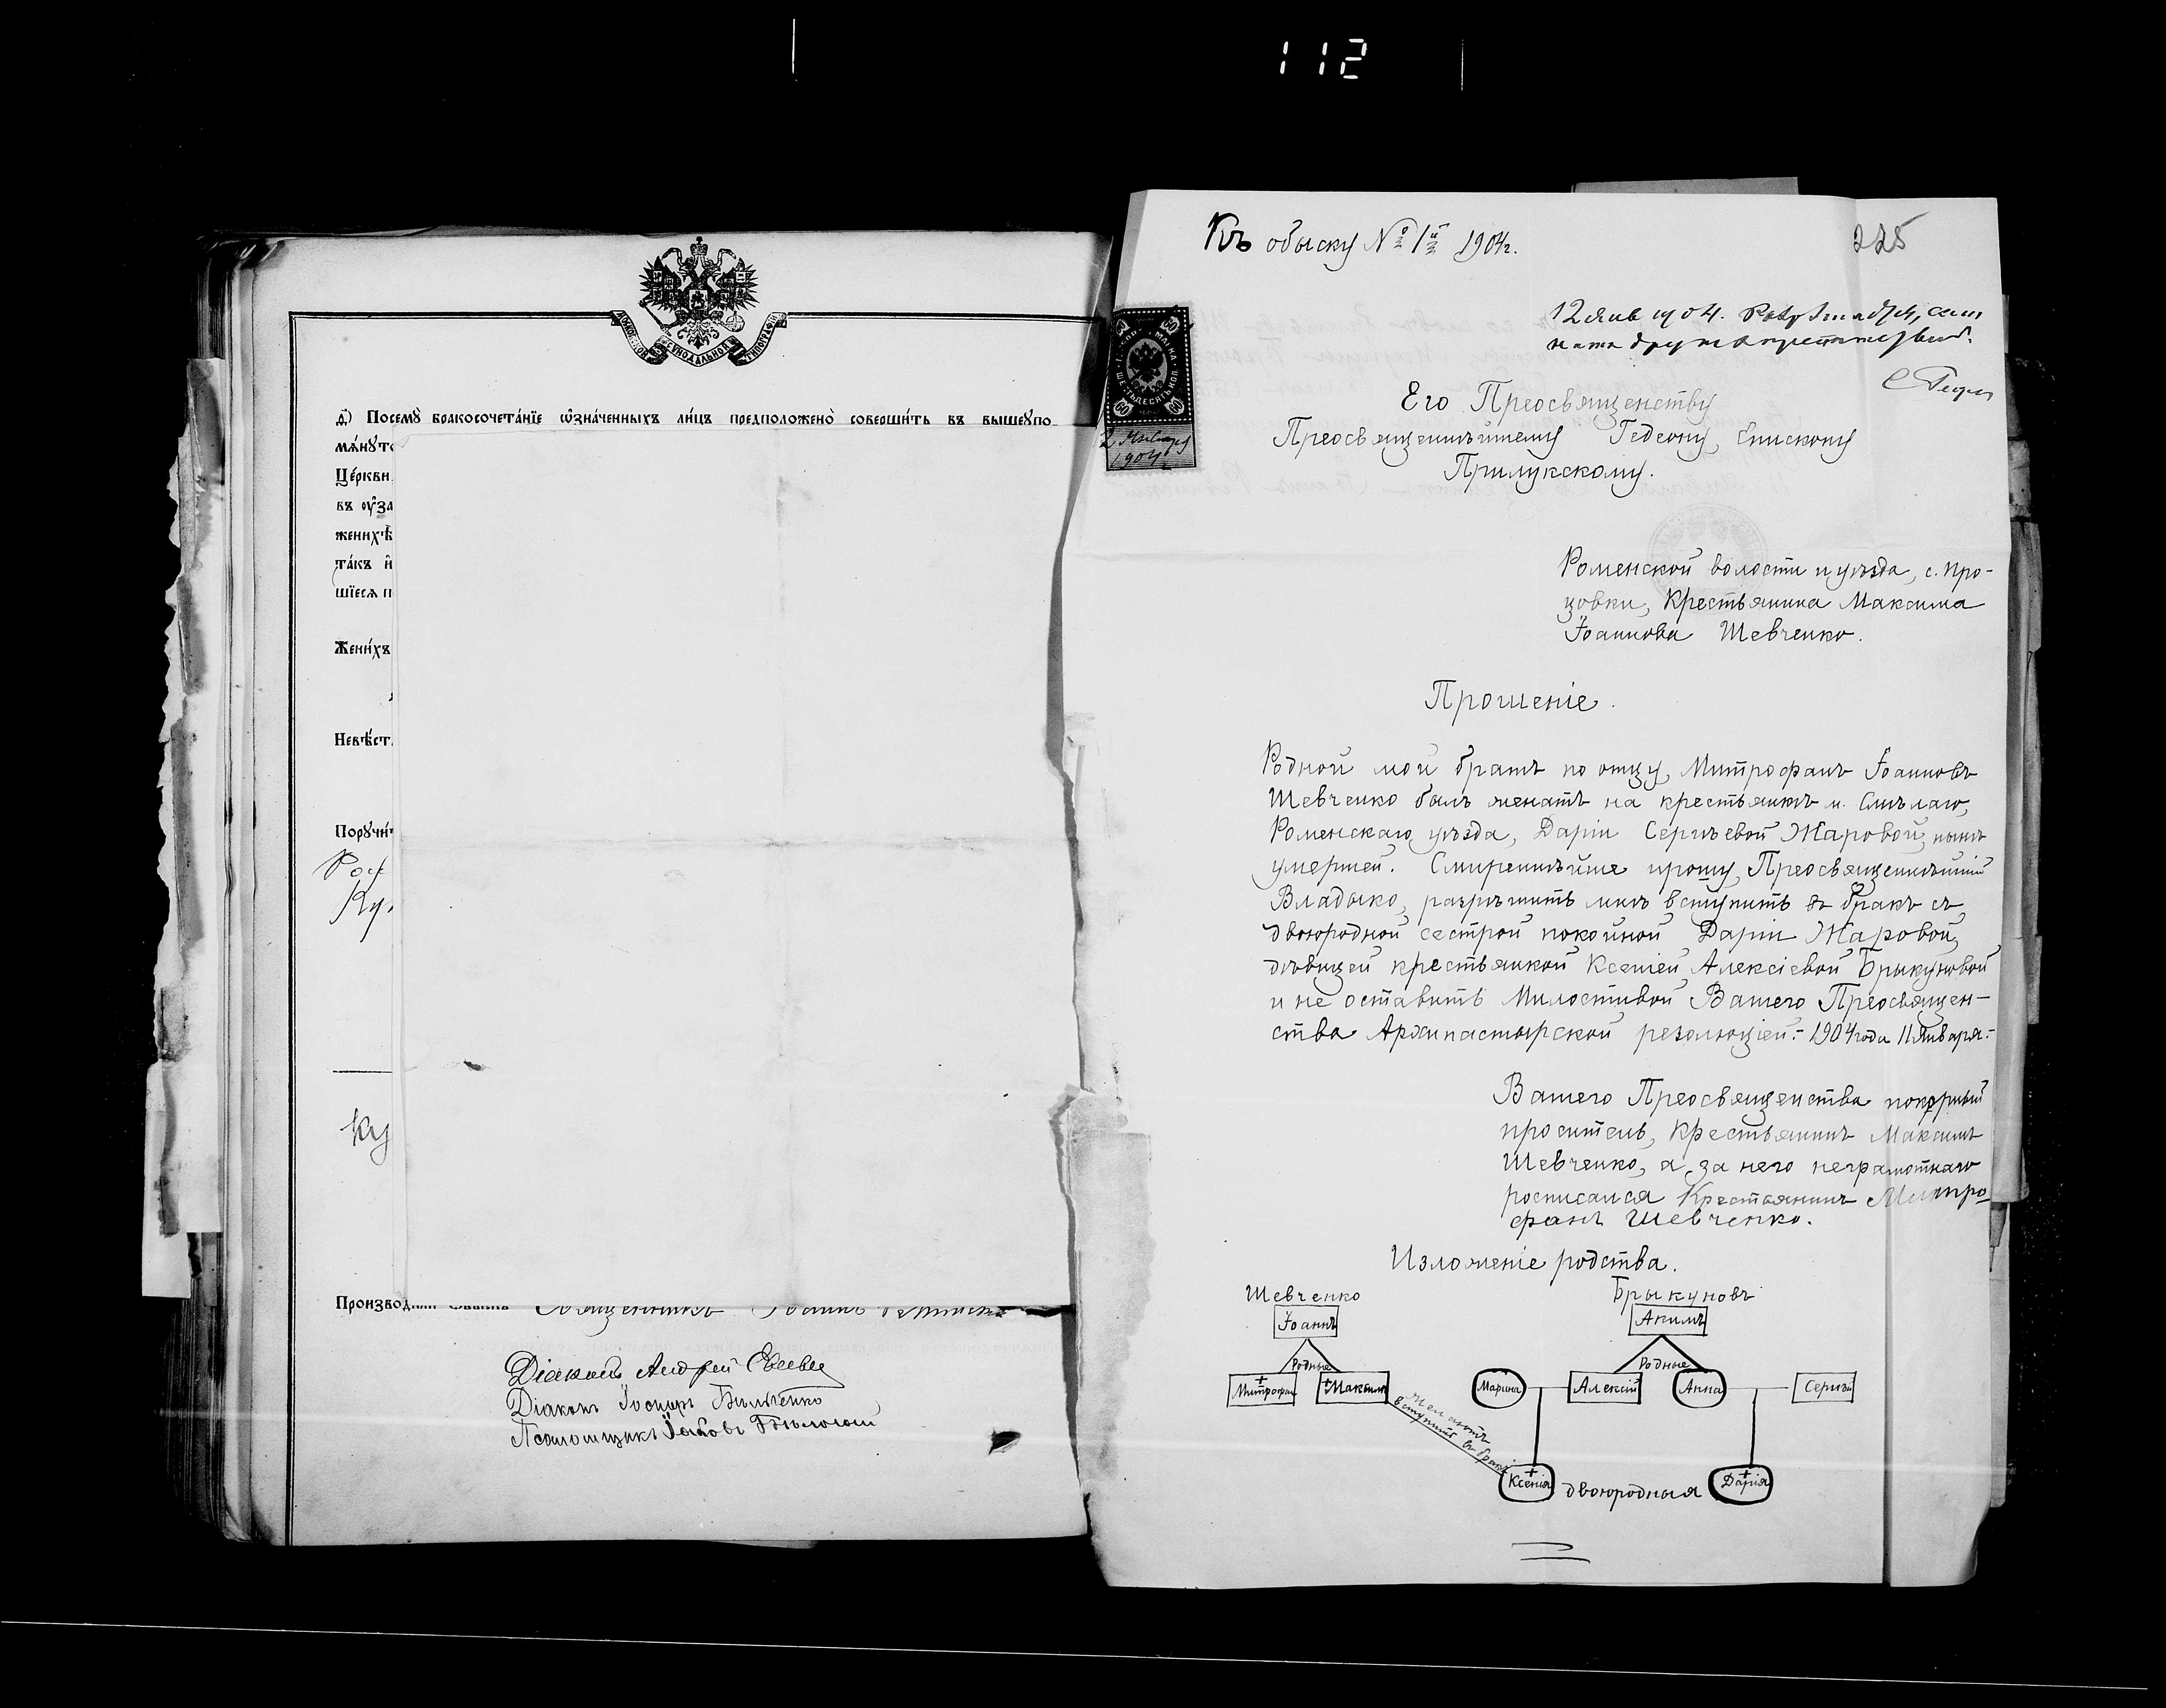 112
д) Посемꙋ бракосочетанїе ѡзначенныхъ лицъ предположено совершить въ вышеꙋпо
мянꙋто
Церкви
въ оуза
жених
такъ и
шїеся п
Женихъ
Невѣст
Порꙋчи
Ку
Производили Священникъ Іоаннъ
Діаконъ Андрей
Діаконъ Іосифъ Бѣльченко
Псаломщикъ Іаковъ
Къ обыску № 1й 1904г.
225
12 Янв 1904.
ШЕСТЬДЕСЯТЪ КОП.
60
1904 г
Его Преосвященству
Преосвященнѣйшему Гедеону, Епископу
Прилукскому.
Роменской волости и уѣзда, с. Про-
цовки, Крестьянина Максима
Іоаннова Шевченко.
Прошеніе.
Родной мой братъ по отцу, Митрофанъ Іоанновъ
Шевченко былъ женатъ на крестьянкѣ м. Смѣлаго,
Роменскаго уѣзда, Даріи Сергѣевой Жаровой, нынѣ
умершей. Смиреннѣйше прошу, Преосвященнѣйшій
Владыко, разрѣшить мнѣ вступить въ бракъ съ
двоюродной сестрой покойной Даріи Жаровой,
дѣвицей крестьянкой Ксеніей Алексіевой Брыкуновой
и не оставить Милостивой Вашего Преосвящен-
ства Архипастырской резолюціей.- 1904 года 11 Января.-
Вашего Преосвященства покорный
проситель, Крестьянинъ Максимъ
Шевченко, а за него неграмотнаго
росписался Крестьянинъ Митро-
фанъ Шевченко.
Изложеніе родства.
Шевченко Брыкуновъ
Іоаннъ Акимъ
Родные Родные
Митрофан Максим Марина Алексій Анна Сергѣй
Желаютъ
вступить въ бракъ
Ксенія двоюродныя Дарія